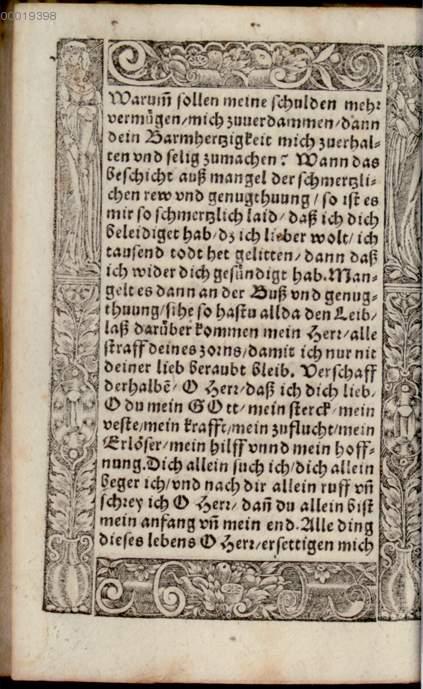 00019398
Warum̃ sollen meine schulden mehr
vermügen/mich zuuerdammen/dann
dein Barmhertzigkeit mich zuerhal-
ten vnd selig zumachen? Wann das
beschicht auß mangel der schmertzli-
chen rew vnd genugthuung/so ist es
mir so schmertzlich laid/daß ich dich
beleidiget hab/dz ich lieber wolt/ich
tausend todt het gelitten/dann daß
ich wider dich gesündigt hab. Man-
gelt es dann an der Buß vnd genug-
thuung/sihe so hastu allda den Leib/
laß darüber kommen mein Herr/alle
straff deines zorns/damit ich nur nit
deiner lieb beraubt bleib. Verschaff
derhalbẽ/O Herr/daß ich dich lieb/
O du mein GOtt/mein sterck/mein
veste/mein krafft/mein zuflucht/mein
Erlöser/mein hilff vnnd mein hoff-
nung. Dich allein such ich/dich allein
beger ich/vnd nach dir allein ruff vñ
schrey ich O Herr/dañ du allein bist
mein anfang vñ mein end. Alle ding
dieses lebens O Herr/ersettigen mich